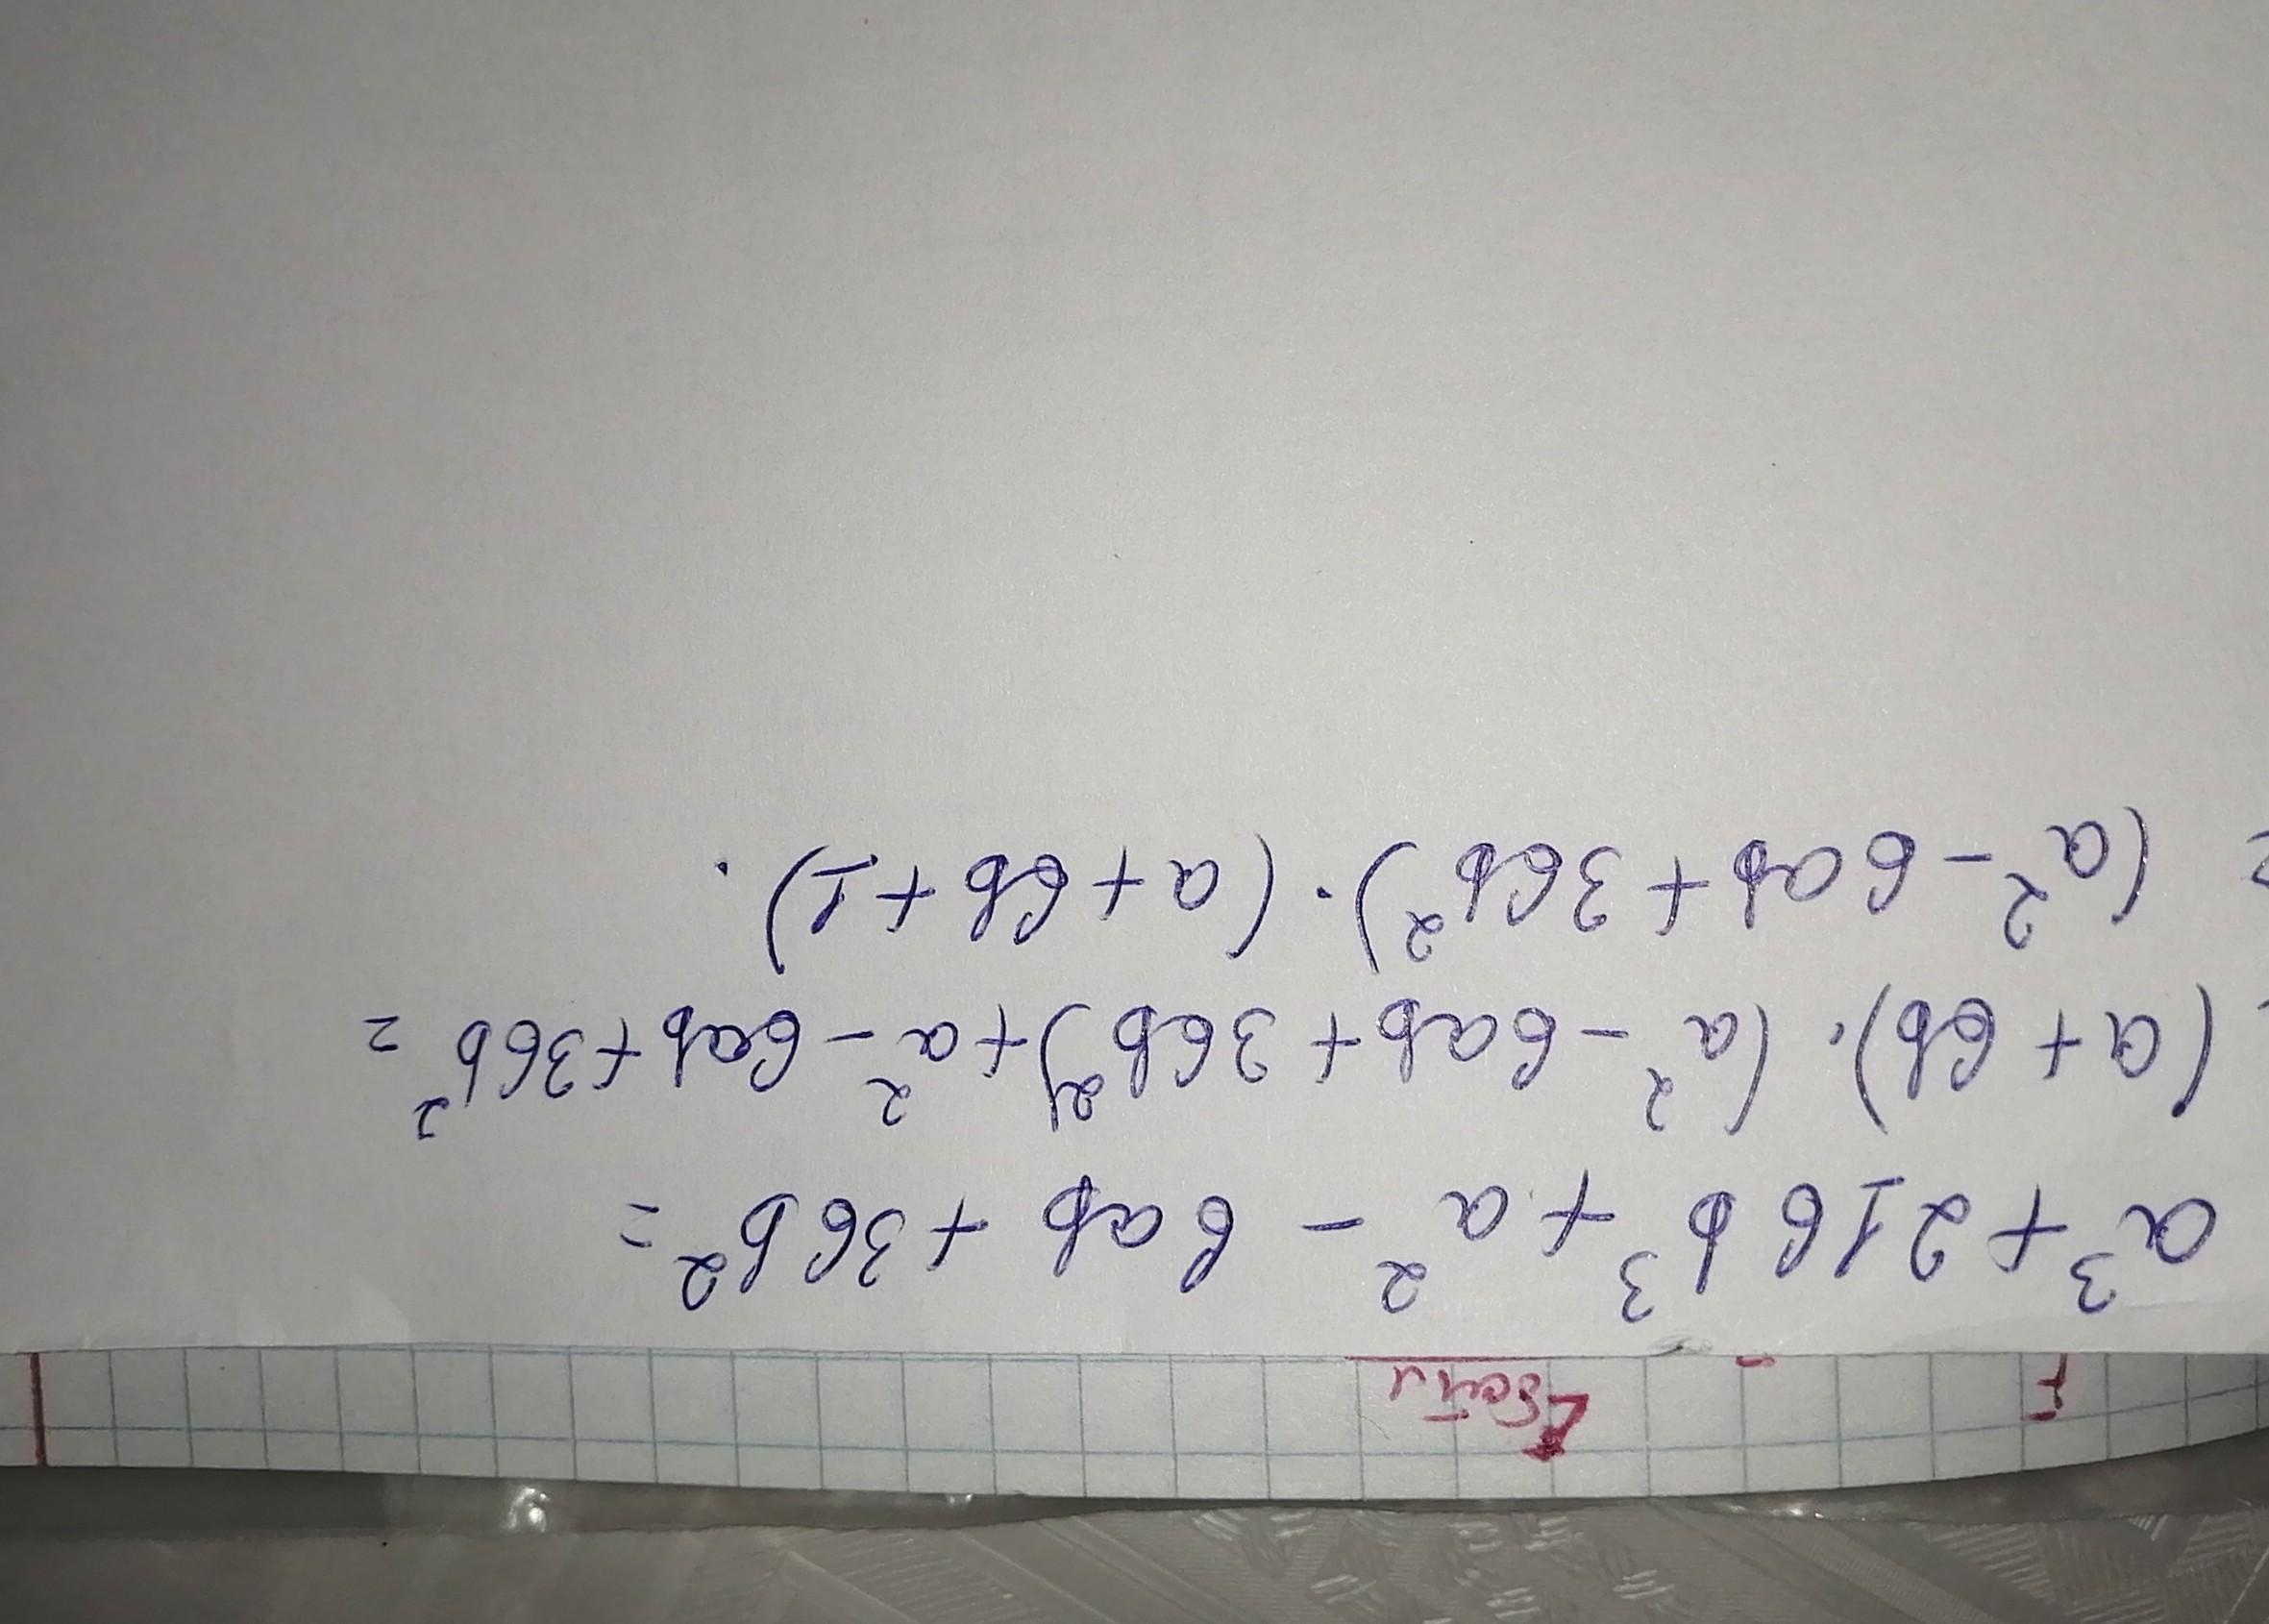 a³ + 216b³ + a² - 6ab + 36b² =
(a + 6b) · (a² - 6ab + 36b²) + a² - 6ab + 36b² =
= (a² - 6ab + 36b²) · (a + 6b + 1).